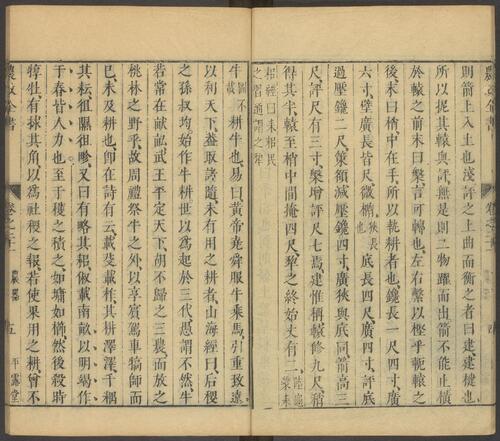 則箭上入土也淺評之上曲而衡之者曰建建揵也
所以抳其轅與評無是則二物躍而出箭不能止橫
於轅之前末曰槃言可轉也左右繫以樫乎軛轅之
後末曰梢中在手所以執耕者也鑱長一尺四寸廣
六寸壁廣長皆尺微橢狹長也底長四尺廣四寸評底
過壓鑱二尺策額減壓鑱四寸廣狹與底同箭高三
尺評尺有三寸槃增評尺七焉建惟稱轅修九尺稍
得其半轅至梢中間掩四尺犂之終始丈有二陸龜蒙耒
耜經曰耒耜民之習通謂之犂
牛圖不載耕牛也易曰黃帝堯舜服牛乘馬引重致遠
以利天下蓋取諸隨未有用之耕者山海經曰后稷
之孫叔均始作牛耕世以為起於三代愚謂不然牛
若常在畎畝武王平定天下胡不歸之三農而放之
桃林之野乎故周禮祭牛之外以享賓駕車犒師而
已未及耕也卽在詩有云載芟載柞其耕澤澤千耦
其耘徂隰徂畛又曰有略其耜俶載南畝以明竭作
于春皆人力也至于穫之積之如墉如櫛然後殺時
犉牡有捄其角以為社稷之報若使果用之耕曾不
農政全書
卷之二十一
農器
五
平露堂